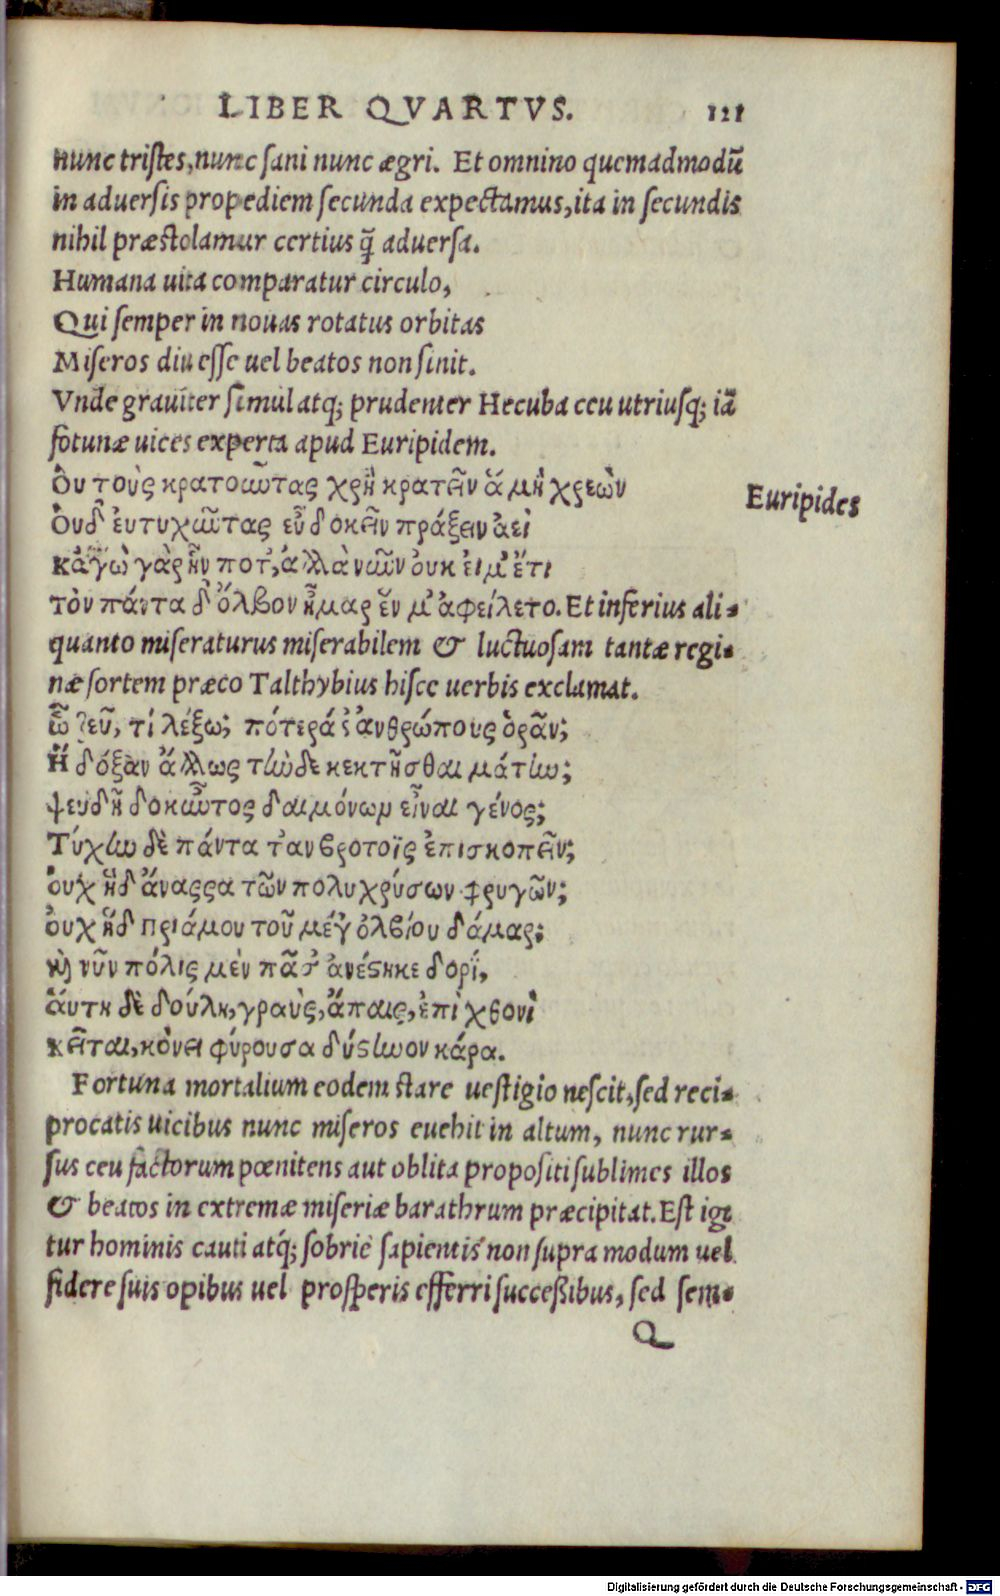 LIBER QVARTVS. 121
nunc tristes, nunc sani nunc ægri. Et omnino quemadmodū
in aduersis propediem secunda expectamus, ita in secundis
nihil præstolamur certius q̃ aduersa.
Humana uita comparatur circulo,
Qui semper in nouas rotatus orbitas
Miseros diu esse uel beatos non sinit.
Vnde grauiter simul atq; prudenter Hecuba ceu utriusq; iā
fotunæ uices experta apud Euripidem.
Ὀυ τοὺς κρατοῶτας χρὴ κρατεῖν ἃ μὴ χρεὼν
Euripides
Ὀυδ' ἐυτυχῶτας εὖ δοκεῖν πράξειν ἀεὶ
κἀγὼ γὰρ ἦν ποτ', ἀλλὰ νῶν ὀυκ ἐιμ' ἔτι
τὸν πάντα δ' ὄλβον ἦμαρ ἕν μ' ἀφείλετο. Et inferius ali-
quanto miseraturus miserabilem & luctuosam tantæ regi-
næ sortem præco Talthybius hisce uerbis exclamat.
ὦ ζεῦ, τί λέξω; πότερά σ' ἀνθρώπους ὁρᾶν;
Ἢ δόξαν ἄλλως τὴνδε κεκτῆσθαι μάτην;
ψευδῆ δοκῶτος δαιμόνων εἶναι γένος;
Τύχην δὲ πάντα τ'ἀν βροτοῖς ἐπισκοπεῖν;
ὀυχ ἥδ' ἄναςσα τῶν πολυχρύσων φρυγῶν;
ὀυχ ἥδ' πριάμου τοῦ μέγ' ὀλβίου δάμαρ;
καὶ νῦν πόλις μὲν πᾶσ' ἀνέστηκε δορὶ,
ἅυτη δὲ δούλη, γραὺς, ἄπαις, ἐπὶ χθονὶ
κεῖται, κόνει φύρουσα δύστηνον κάρα.
Fortuna mortalium eodem stare uestigio nescit, sed reci-
procatis uicibus nunc miseros euehit in altum, nunc rur-
sus ceu factorum pœnitens aut oblita propositi sublimes illos
& beatos in extremæ miseriæ barathrum præcipitat. Est igi
tur hominis cauti atq́; sobriè sapientis non supra modum uel
fidere suis opibus uel prosperis efferri successibus, sed sem-
Q
Digitalisierung gefördert durch die Deutsche Forschungsgemeinschaft - DFG